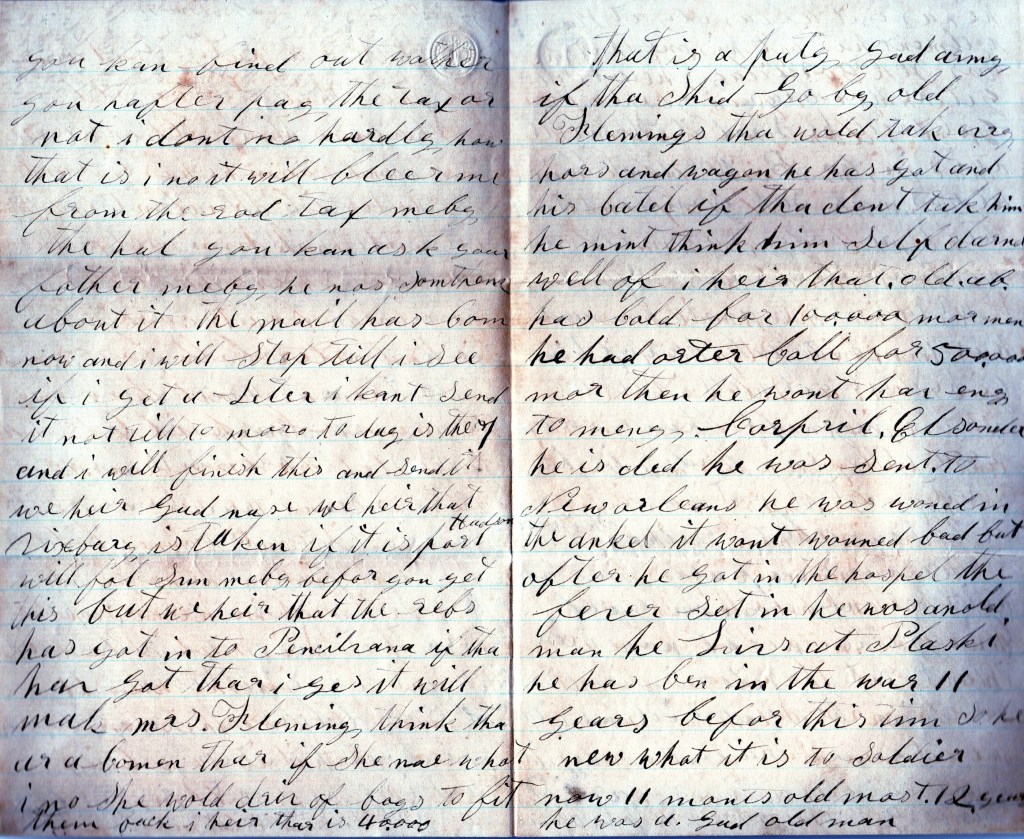 you kan find out wether
you rafter pay the tax or
not i dont no hardly how
that is i no it will cleer me
from the rod tax meby
the hul you kan ask your
father meby he nos
about it the mail has Com
now and i will Stop till i See
if i get a Leter i kant Send
it not till to moro to day is the 7
and i will finish this and Send it
we heir Gud nuse we heir that
vixburg is taken if it is port Hudson
will fol Sun meby befor you get
this but we heir that the rebs
has got in to Pencilvana if tha
hav Got thar i ges it will
mak mrs. Fleming think tha
ar a Comen thar if She nae what
i no She wold driv of bogs to fit
them back i heir thar is 40.000
that is a puty Gud army
if tha Shid Go by old
Flemings tha wold tak evry
hors and wagon he has Got and
his Catel if tha dont tak him
he mint think him Self darnd
well of i heir that old ab
has Cald for 100.000 mor men
he had orter Call for 500.000
mor then he wont hav eny
to meny Corpril
he is ded he was Sent to
Neworleans he was woned in
the ankel it wont wouned bad but
after he Got in the hospel the
fever Set in he was an old
man he Livs at Plaski
he has ben in the war 11
years befor this tim So he
new what it is to Soldier
now 11 monts old most. 12 years
he was a Gud old man